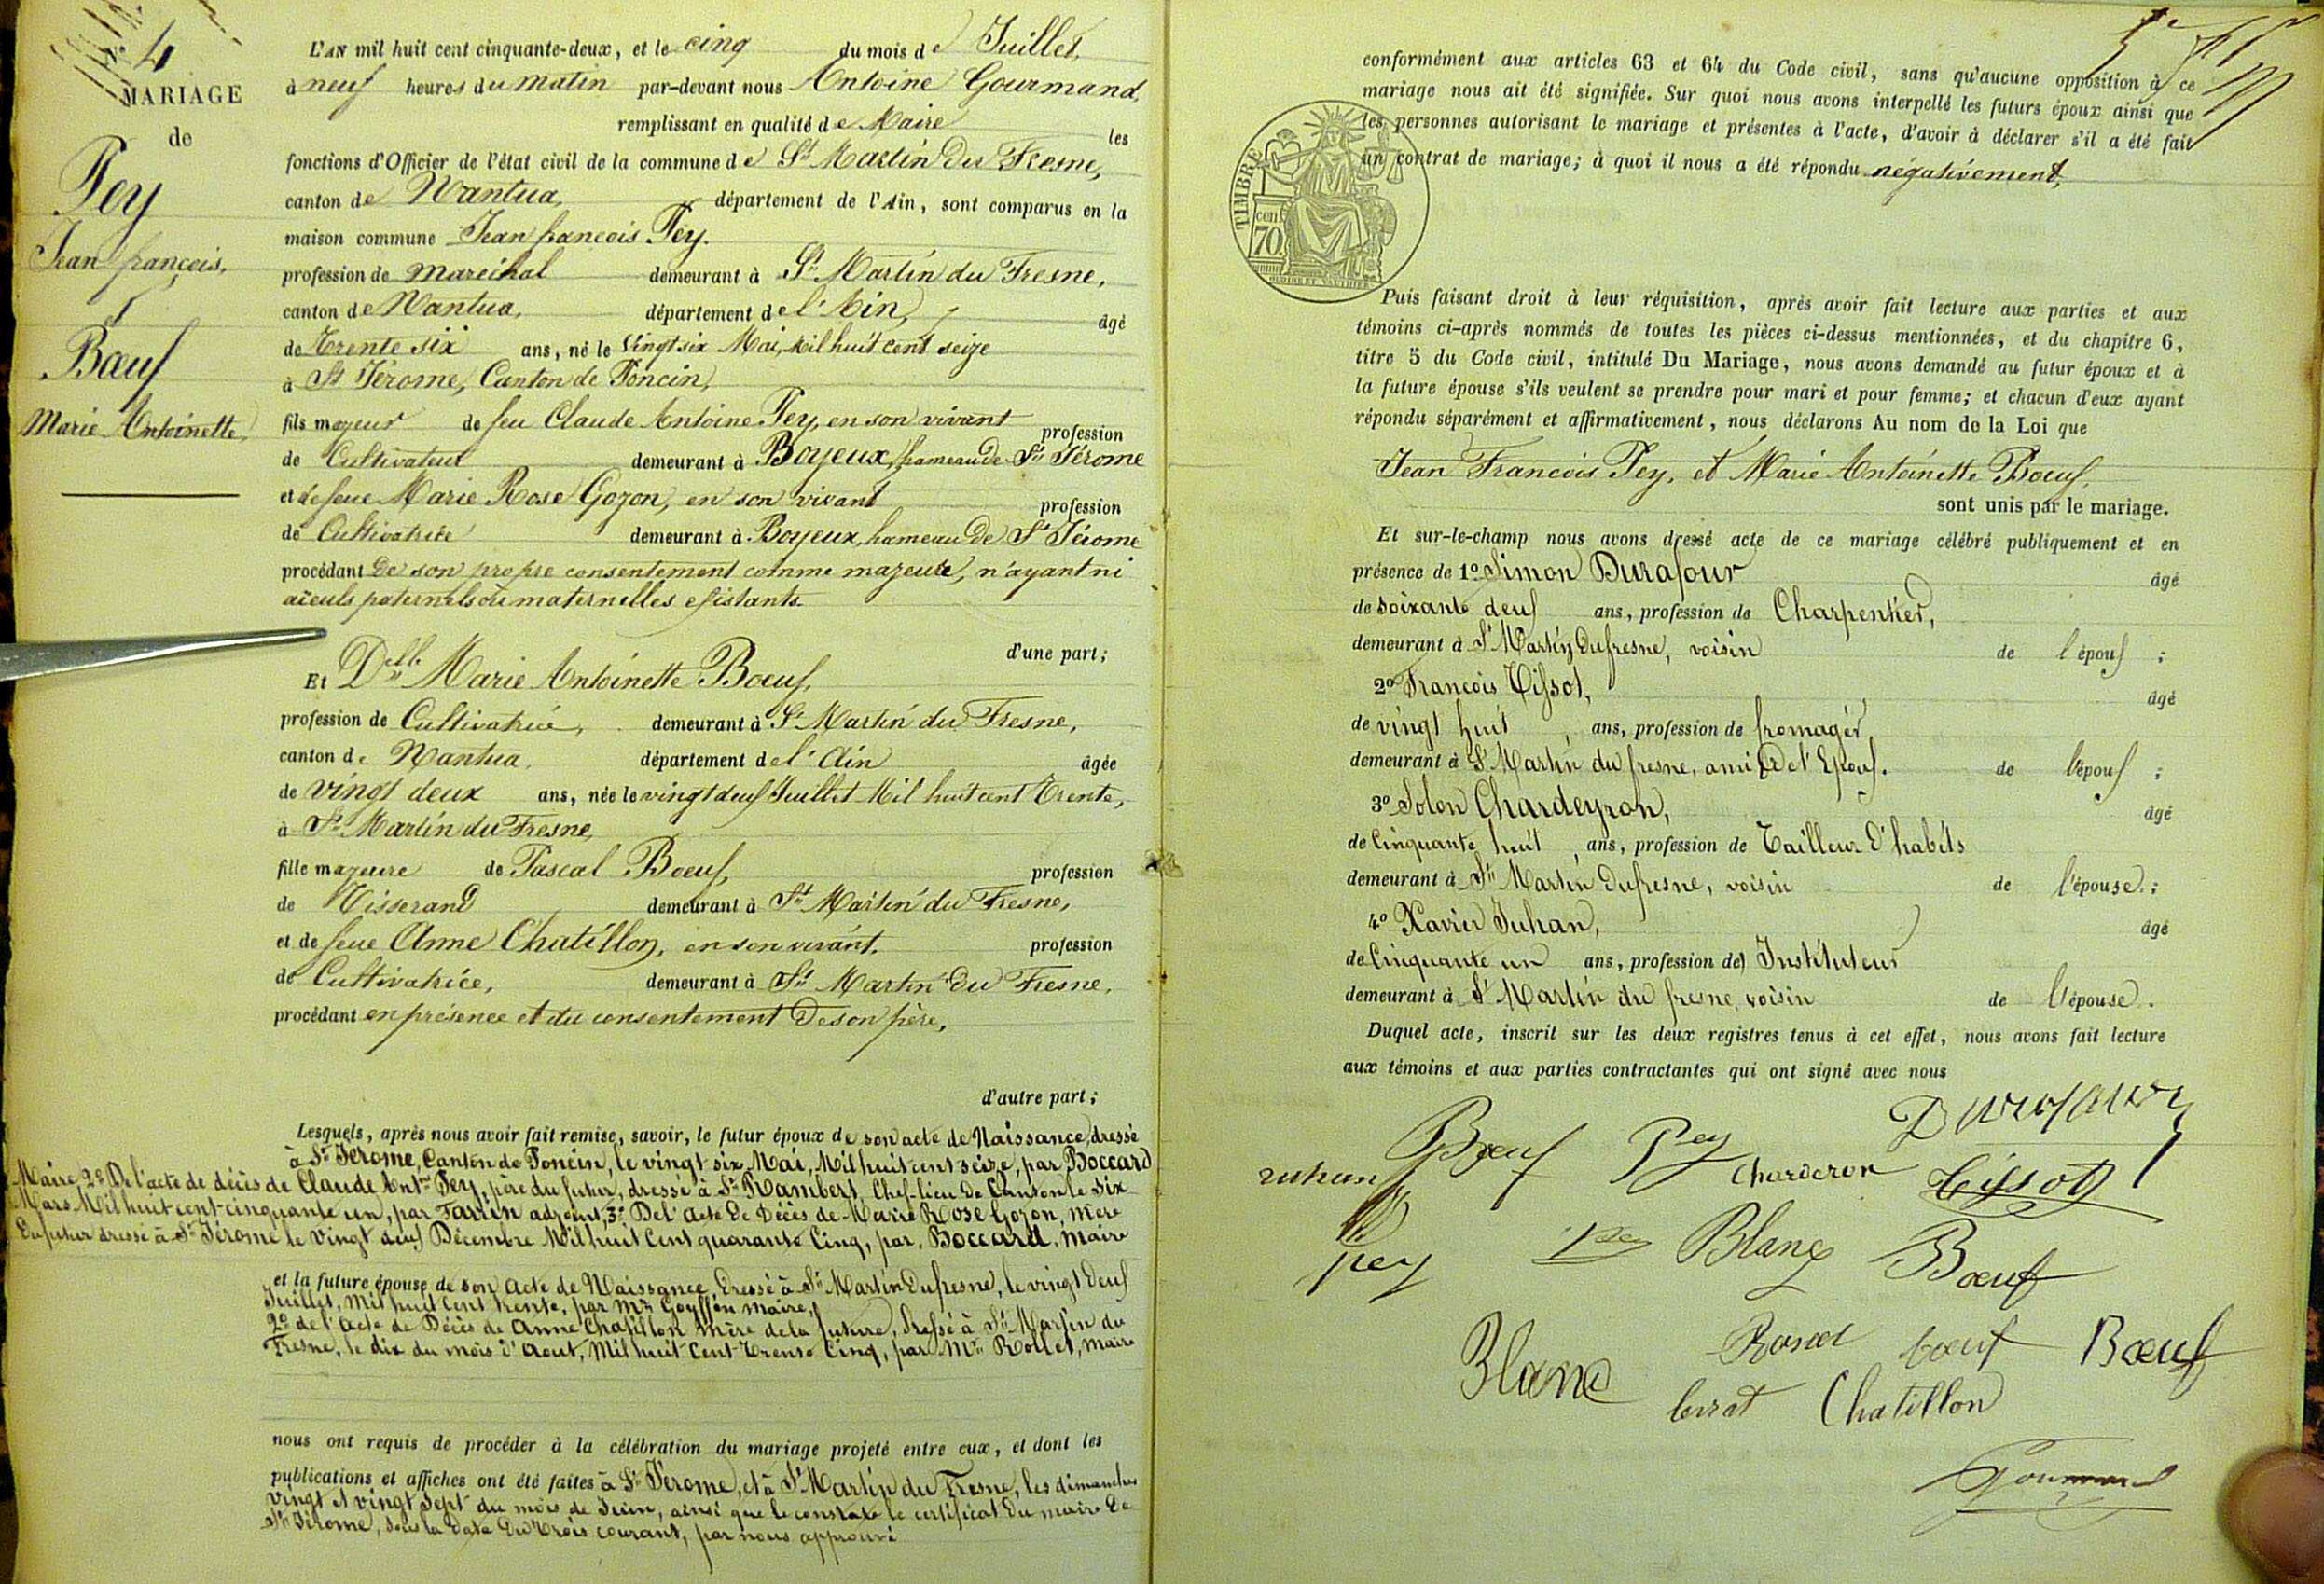 N° 4
MARIAGE
de
Pey
Jean françois,
et
Bœuf
Marie Antoinette,
L'AN mil huit cent cinquante-deux, et le cinq du mois de Juillet,
à neuf heures du matin par-devant nous Antoine Gourmand,
remplissant en qualité de Maire les
fonctions d'Officier de l'état civil de la commune de St Martin du Fresne,
canton de Nantua, département de l'Ain, sont comparus en la
maison commune Jean françois Pey.
profession de maréchal demeurant à St Martin du Fresne,
canton de Nantua, département de l'Ain, âgé
de Trente six ans, né le Vingt six Mai, Mil huit cent seize
à St Jérome, Canton de Poncin,
fils majeur de feu Claude Antoine Pey, en son vivant profession
de Cultivateur demeurant à Boyeux, hameau de St Jérome
et de feue Marie Rose Gozon, en son vivant profession
de Cultivatrice demeurant à Boyeux, hameau de St Jérome
procédant De son propre consentement comme majeure, n'ayant ni
aïeuls paternels ou maternelles existants.
d'une part;
Et Delle Marie Antoinette Bœuf,
profession de Cultivatrice, demeurant à St Martin du Fresne,
canton de Nantua. département de l'Ain âgée
de vingt deux ans, née le vingt deux Juillet Mil huit cent Trente,
à St Martin du Fresne,
fille majeure de Pascal Bœuf, profession
de Tisserand demeurant à St Martin du Fresne,
et de feue Anne Chatillon, en son vivant. profession
de Cultivatrice, demeurant à St Martin du Fresne.
procédant en présence et du consentement De son père,
d'autre part;
Lesquels, après nous avoir fait remise, savoir, le futur époux de son acte de Naissance, dressé
à St Jérome, Canton de Poncin, le vingt six Mai, Mil huit cent seize, par Boccard
Maire, 2° De l'acte de décès de Claude Antne Pey, père du futur, dressé à St Rambert, Chef-lieu De Canton le Six
Mars Mil huit-cent-cinquante un, par adjoint, 3° De l'acte De Décès de Marie Rose Gozon, mère
du futur dressé à St Jérome le Vingt deux Décembre Mil huit Cent quarante Cinq, par, Boccard, Maire
et la future épouse de son Acte de Naissance, Dressé à St Martin Dufresne, le vingt deux
Juillet, Mil huit Cent trente, par Mr Goyffon maire,
2° de l'Acte de Décès de Anne Chatillon Mère de la future, Dressé à St Martin du
Fresne, le dix du mois d'Aout, Mil huit-Cent-Trente Cinq, par Mr Rollet, Maire
nous ont requis de procéder à la célébration du mariage projeté entre eux, et dont les
publications et affiches ont été faites à St Jérome, et à St Martin du Fresne, les dimanches
vingt et vingt sept du mois de Juin, ainsi que le constate le certificat Du maire De
St Jérome, sous la date du trois courant, par nous approuvé
conformément aux articles 63 et 64 du Code civil, sans qu'aucune opposition à ce
mariage nous ait été signifiée. Sur quoi nous avons interpellé les futurs époux ainsi que
les personnes autorisant le mariage et présentes à l'acte, d'avoir à déclarer s'il a été fait
un contrat de mariage; à quoi il nous a été répondu négativement,
TIMBRE
cen
70
Puis faisant droit à leur réquisition, après avoir fait lecture aux parties et aux
témoins ci-après nommés de toutes les pièces ci-dessus mentionnées, et du chapitre 6,
titre 5 du Code civil, intitulé Du Mariage, nous avons demandé au futur époux et à
la future épouse s'ils veulent se prendre pour mari et pour femme; et chacun d'eux ayant
répondu séparément et affirmativement, nous déclarons Au nom de la Loi que
Jean François Pey, et Marie Antoinette Bœuf.
sont unis par le mariage.
Et sur-le-champ nous avons dressé acte de ce mariage célébré publiquement et en
présence de 1° Simon Durafour âgé
de soixante deux ans, profession de Charpentier,
demeurant à St Martin Dufresne, voisin de l'époux ;
2° François Tissot, âgé
de vingt huit, ans, profession de fromager,
demeurant à St Martin du fresne, ami De l'Epoux. de l'époux ;
3° Solon Chardeyron, âgé
de Cinquante huit, ans, profession de Tailleur d'habits
demeurant à St Martin Dufresne, voisin de l'épouse. ;
4° Xavier Juhan, âgé
de Cinquante un ans, profession de Instituteur
demeurant à St Martin du fresne, voisin de l'épouse.
Duquel acte, inscrit sur les deux registres tenus à cet effet, nous avons fait lecture
aux témoins et aux parties contractantes qui ont signé avec nous
Durafour
Bœuf Pey Charderon Tissot
Juhan
pey Blanc Bœuf
Blanc bœuf Bœuf
Chatillon
Gourmand